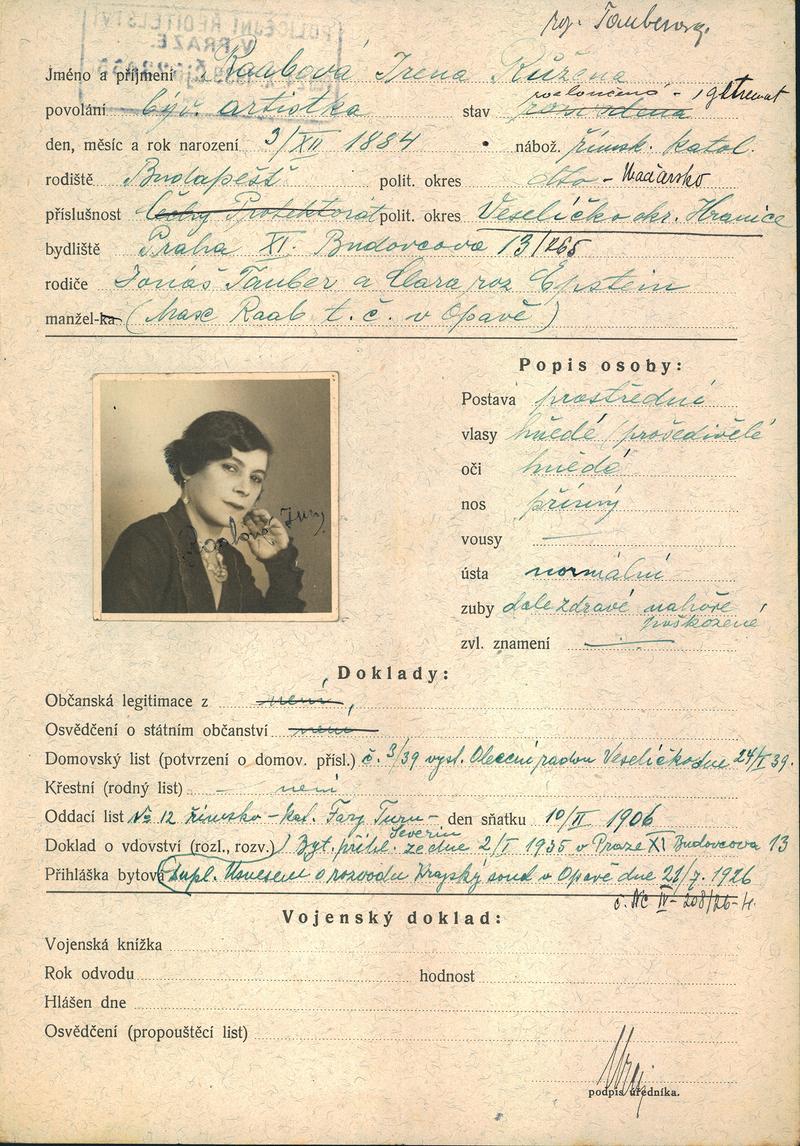 roz. Tauberová.
POLICEJNÍ ŘEDITELSTVÍ
V PRAZE.
Jméno a příjmení Raabová Irena Růžena
povolání býv. artistka stav rozvedená
den, měsíc a rok narození 3/XII 1884 nábož. římsk. katol.
rodiště Budapešť polit. okres dtto - Maďarsko
příslušnost Čechy Protektorát polit. okres Veselíčko okr. Hranice
bydliště Praha XI. Budovcova 13/265
rodiče Jonáš Tauber a Clara roz Epstein
manžel-ka (Max Raab t. č. v Opavě)
Popis osoby:
Postava prostřední
vlasy hnědé/prošedivělé
oči hnědé
nos přímý
vousy —
ústa normální
zuby dole zdravé nahoře
poškozené
zvl. znamení —
Raabová Irena
Doklady:
Občanská legitimace z není
Osvědčení o státním občanství není
Domovský list (potvrzení o domov. přísl.) č. 3/39 vyst. Obecní radou Veselíčko dne 24/I 39.
Křestní (rodný list) - není
Oddací list № 12 římsko-kat. Fary Turn - den sňatku 10/II 1906
Severin
Doklad o vdovství (rozl., rozv.) Byt. přihl. ze dne 2/I 1935 v Praze XI Budovcova 13
Přihláška bytová Dupl. Usnesení o rozvodu Krajský soud v Opavě dne 21/7. 1926
č. Nc IV-208/26-4.
Vojenský doklad:
Vojenská knížka
Rok odvodu hodnost
Hlášen dne
Osvědčení (propouštěcí list)
podpis úředníka.